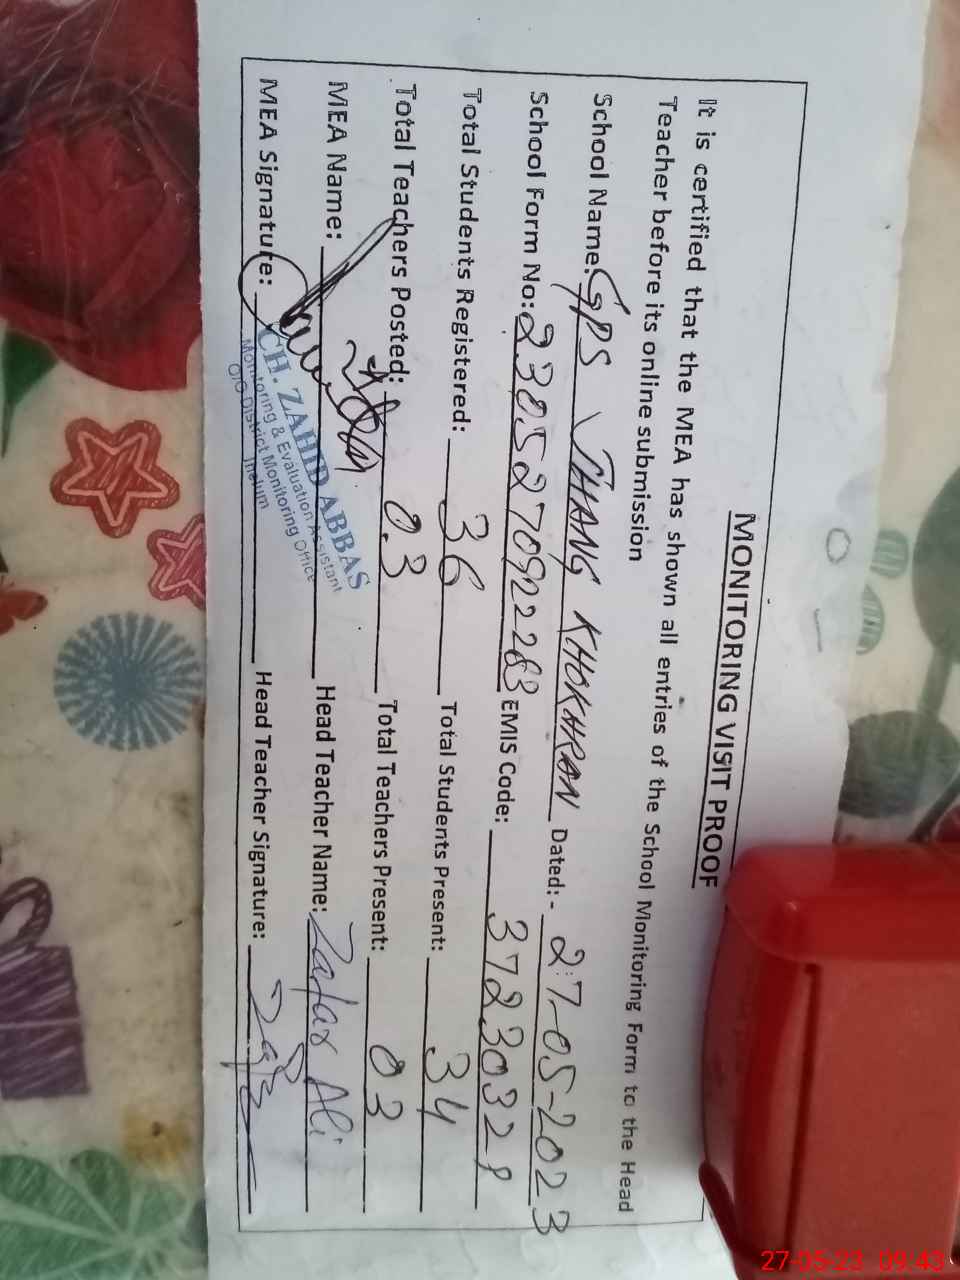 MONITORING VISIT PROOF
It is certified that the MEA has shown all entries of the School Monitoring Form to the Head
Teacher before its online submission
School Name: GPS JHANG KHOKHRAN Dated:- 27-05-2023
School Form No: 2305270922263 EMIS Code: 37230328
Total Students Registered: 36 Total Students Present: 34
Total Teachers Posted: 03 Total Teachers Present: 03
MEA Name: Head Teacher Name: Zafar Ali
MEA Signature: Head Teacher Signature:
CH. ZAHID ABBAS
Monitoring & Evaluation Assistant
O/O District Monitoring Office
Jhelum
27-05-23 09:43